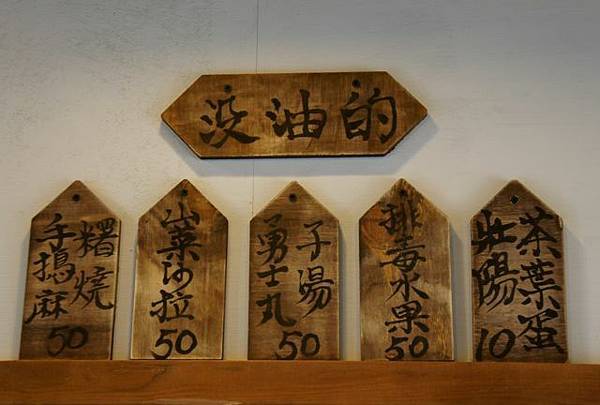 没油的
手搗麻
糬燒
50
山菜沙拉
50
勇士丸
子湯
50
排毒水果
50
壯陽
茶葉蛋
10